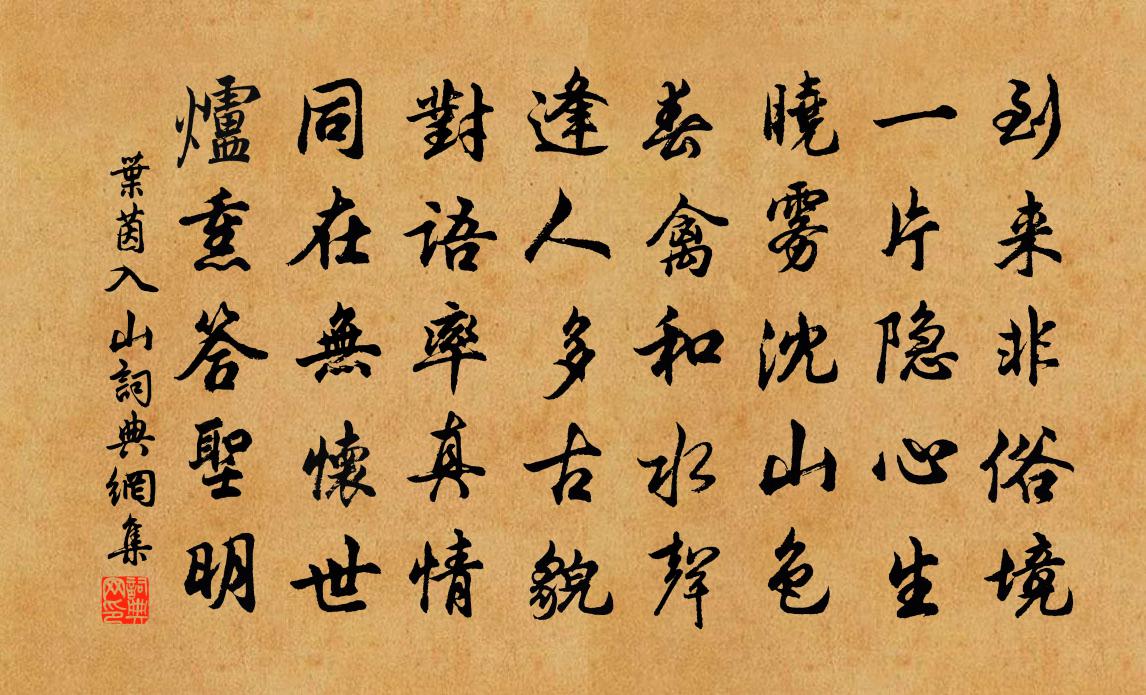 到来非俗境
一片隐心生
曉雾沈山色
春禽和水聲
逢人多古貌
對語率真情
同在無懷世
爐熏答聖明
葉茵入山詞典網集
詞典网印